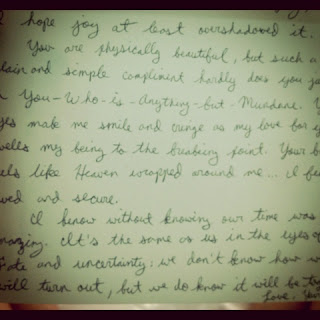 hope joy at least overshadowed it.
You are physically beautiful, but such a
plain and simple compliment hardly does you
You-Who-is-Anything-but-Mundane.
make me smile and cringe as my love for
swells my being to the breaking point. Your
feels like Heaven wrapped around me... I
and secure.
I know without knowing our time was
amazing. It's the same as us in the eyes of
Fate and uncertainty: we don't know how
will turn out, but we do know it will be
Love,